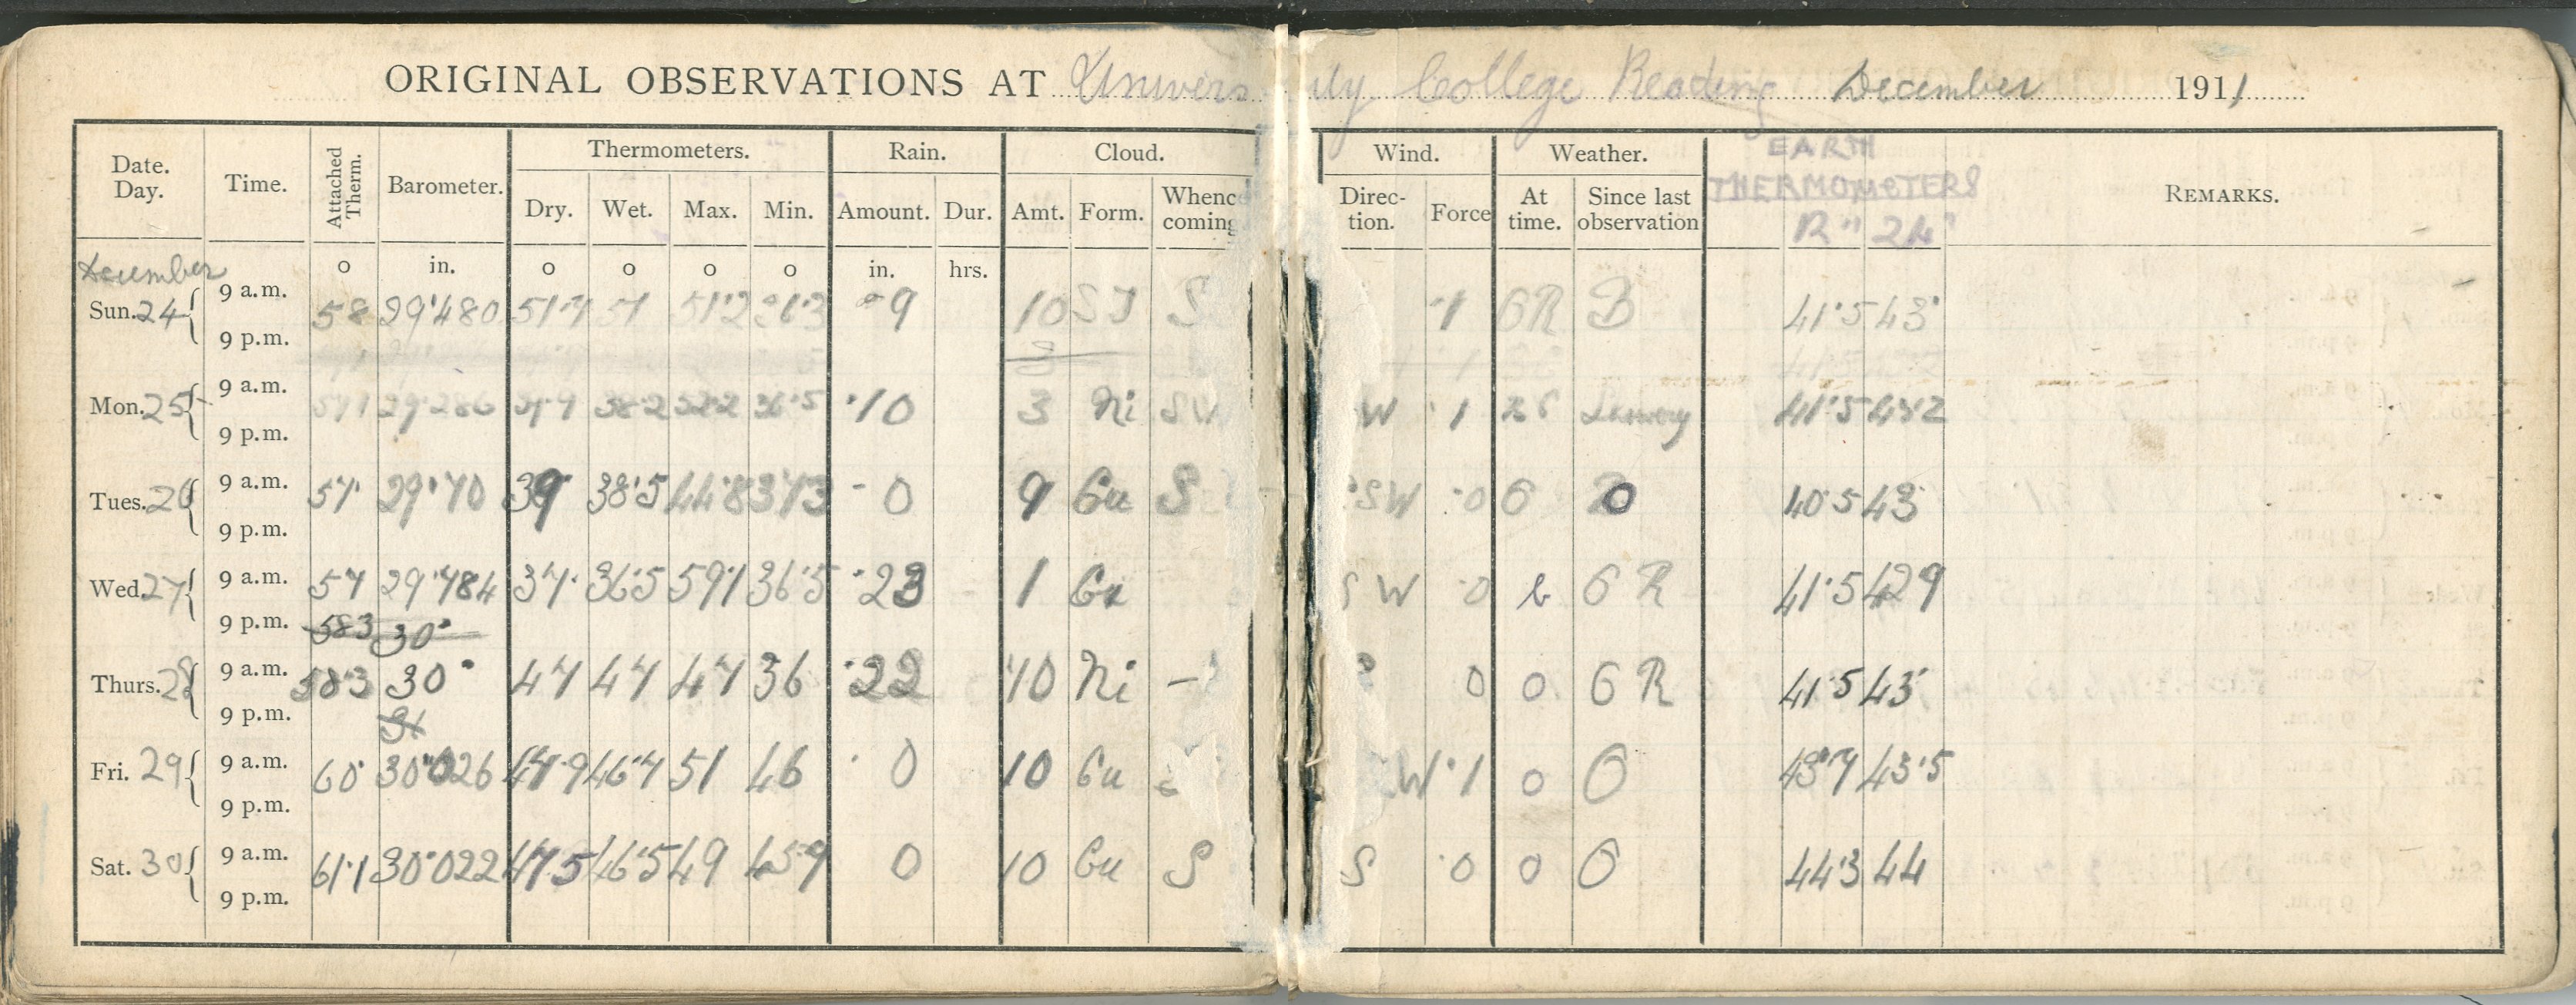 ORIGINAL OBSERVATIONS AT University College Reading December 1911
Date. Day. Time. Attached Therm. Barometer. Thermometers. Rain. Cloud. Wind. Weather. EARTH THERMOMETERS REMARKS.
Dry. Wet. Max. Min. Amount. Dur. Amt. Form. Whence coming Direc-tion. Force At time. Since last observation 12" 24"
December o in. o o o o in. hrs.
Sun. 24 9 a.m. 58 29.480 51.7 51 51.2 9 10 S S 1 R B 41.5 43
9 p.m.
Mon. 25 9 a.m. 29.286 38.2 52.2 36.5 .10 3 Ni SW W .1 41.5 43.2
9 p.m.
Tues. 26 9 a.m. 57. 29.70 39 38.5 44.8 37.3 - 0 9 Cu S SW .0 0 40.5 43
9 p.m.
Wed. 27 9 a.m. 57 29.784 37. 36.5 59.1 36.5 .23 1 Cu SW .0 b C R 41.5 42.9
9 p.m. 58.3 30.
Thurs. 28 9 a.m. 58.3 30. 47 47 47 36 .22 10 Ni - 0 o C R 41.5 43
9 p.m.
Fri. 29 9 a.m. 60. 30.026 47.9 46.7 51 46 0 10 Cu W .1 o O 43.7 43.5
9 p.m.
Sat. 30 9 a.m. 61.1 30.022 47.5 46.5 49 45.9 0 10 Cu S S .0 o O 44.3 44
9 p.m.